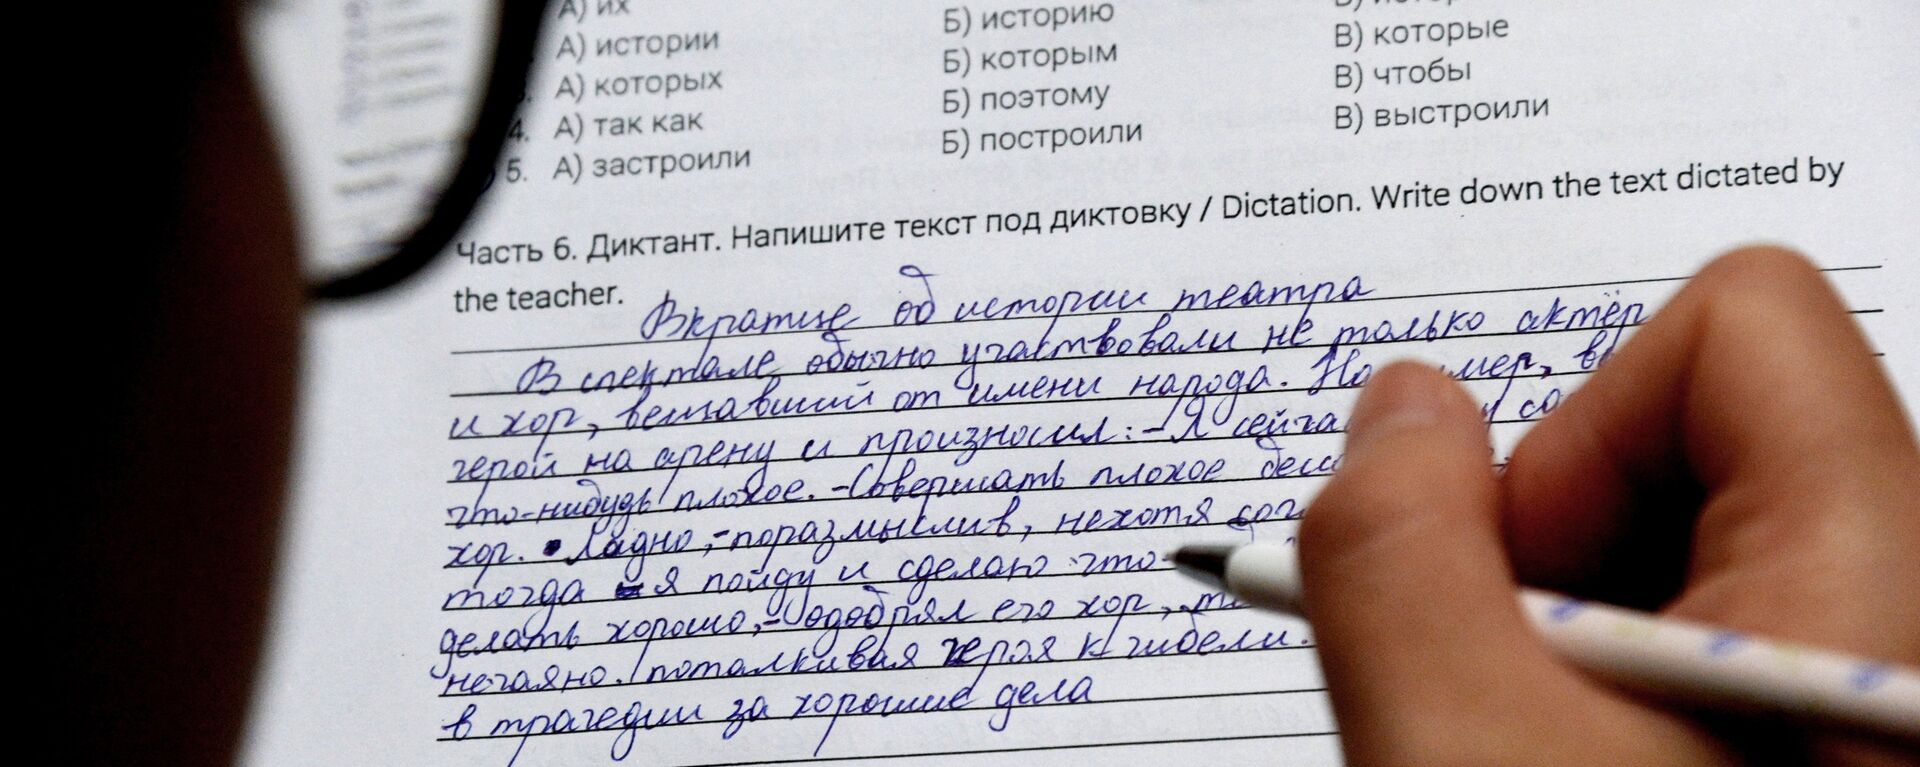 А) их
А) истории Б) историю
А) которых Б) которым В) которые
4. А) так как Б) поэтому В) чтобы
5. А) застроили Б) построили В) выстроили
Часть 6. Диктант. Напишите текст под диктовку / Dictation. Write down the text dictated by
the teacher.
Вкратце об истории театра
В спектале обычно участвовали не только актёр
и хор, вещавший от имени народа.
герой на арену и произносил: - Я
что-нибудь плохое. - Совершать плохое
хор. Ладно, - поразмыслив, нехотя
тогда я пойду и сделаю что-
делать хорошо, - одобрял его хор,
нечаяно. поталкивая героя к гибели.
в трагедии за хорошие дела